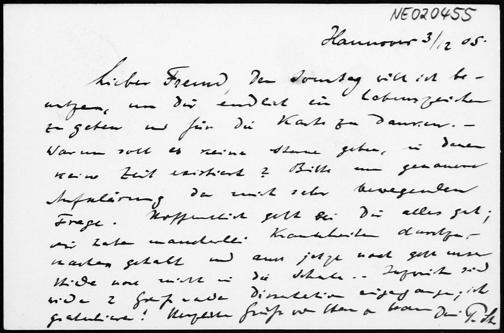 NE020455
Hannover 3/12 05.
Lieber Freund, Den Sonntag will ich be-
nutzen, um Dir endlich ein Lebenszeichen
zu geben und für die Karte zu danken. –
Warum soll es keine Sterne geben, in denen
keine Zeit existiert? Bitte um genauere
Aufklärung der mich sehr bewegenden
Frage. Hoffentlich geht bei Dir alles gut;
wir haben mancherlei Krankheiten durchzu-
machen gehabt und auch jetzt noch geht unser
nicht in die Schule. – sind
eingegangen, ich
gratuliere! Herzliche Grüße von Haus zu Haus Dein